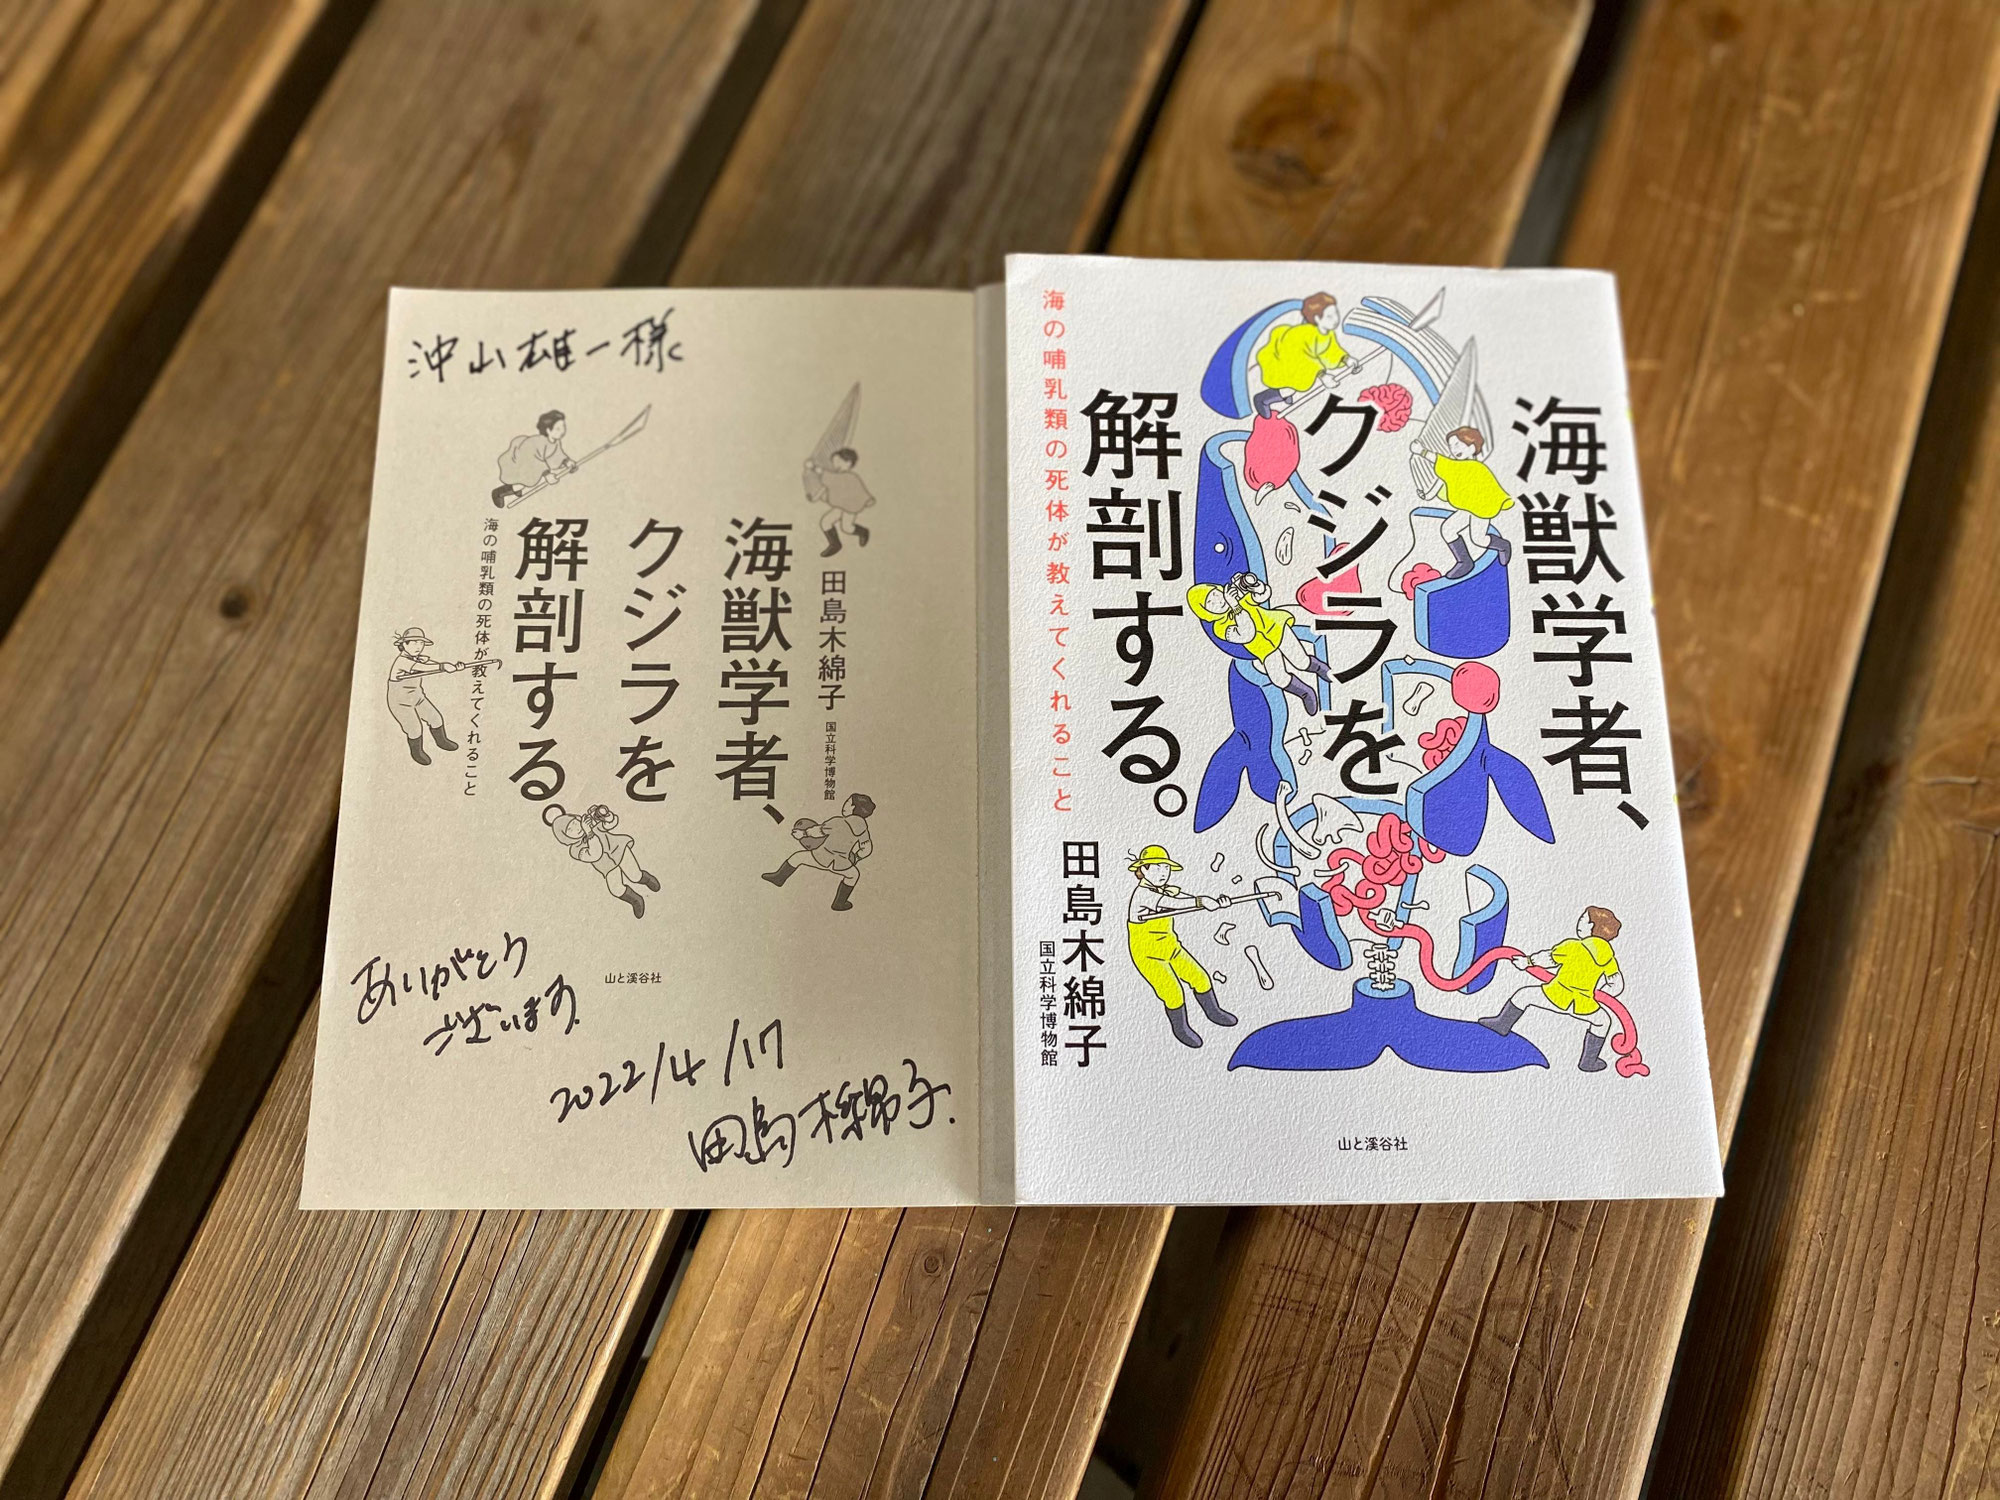 沖山雄一様
田島木綿子
国立科学博物館
海獣学者、
クジラを
解剖する。
海の哺乳類の死体が教えてくれること
山と溪谷社
ありがとう
ございます。
2022/4/17
田島木綿子.
海獣学者、
クジラを
解剖する。
海の哺乳類の死体が教えてくれること
田島木綿子
国立科学博物館
山と溪谷社